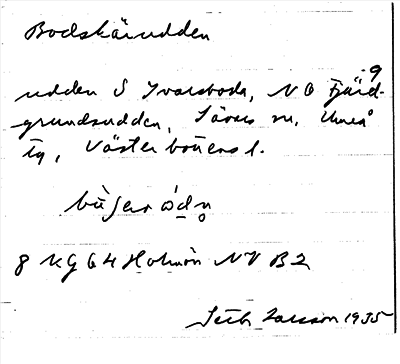 Bodskärudden
udden S Ivarsboda, NO Fjärd-
grundsudden, Sävar sn, Umeå
tg, Västerbottens l.
8 KG 64 Holmön NV B2
Seth Larsson 1935